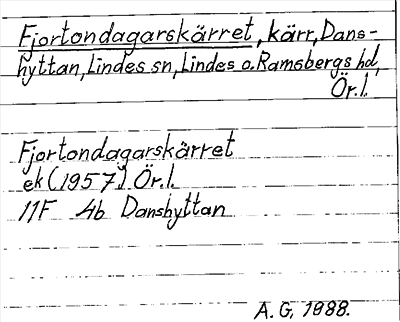 Fjortondagarskärret, kärr, Dans-
hyttan, Lindes sn, Lindes o. Ramsbergs hd,
Ör.l.
Fjortondagarskärret
ek (1957) Ör.l.
11F 4b Danshyttan
A.G, 1988.